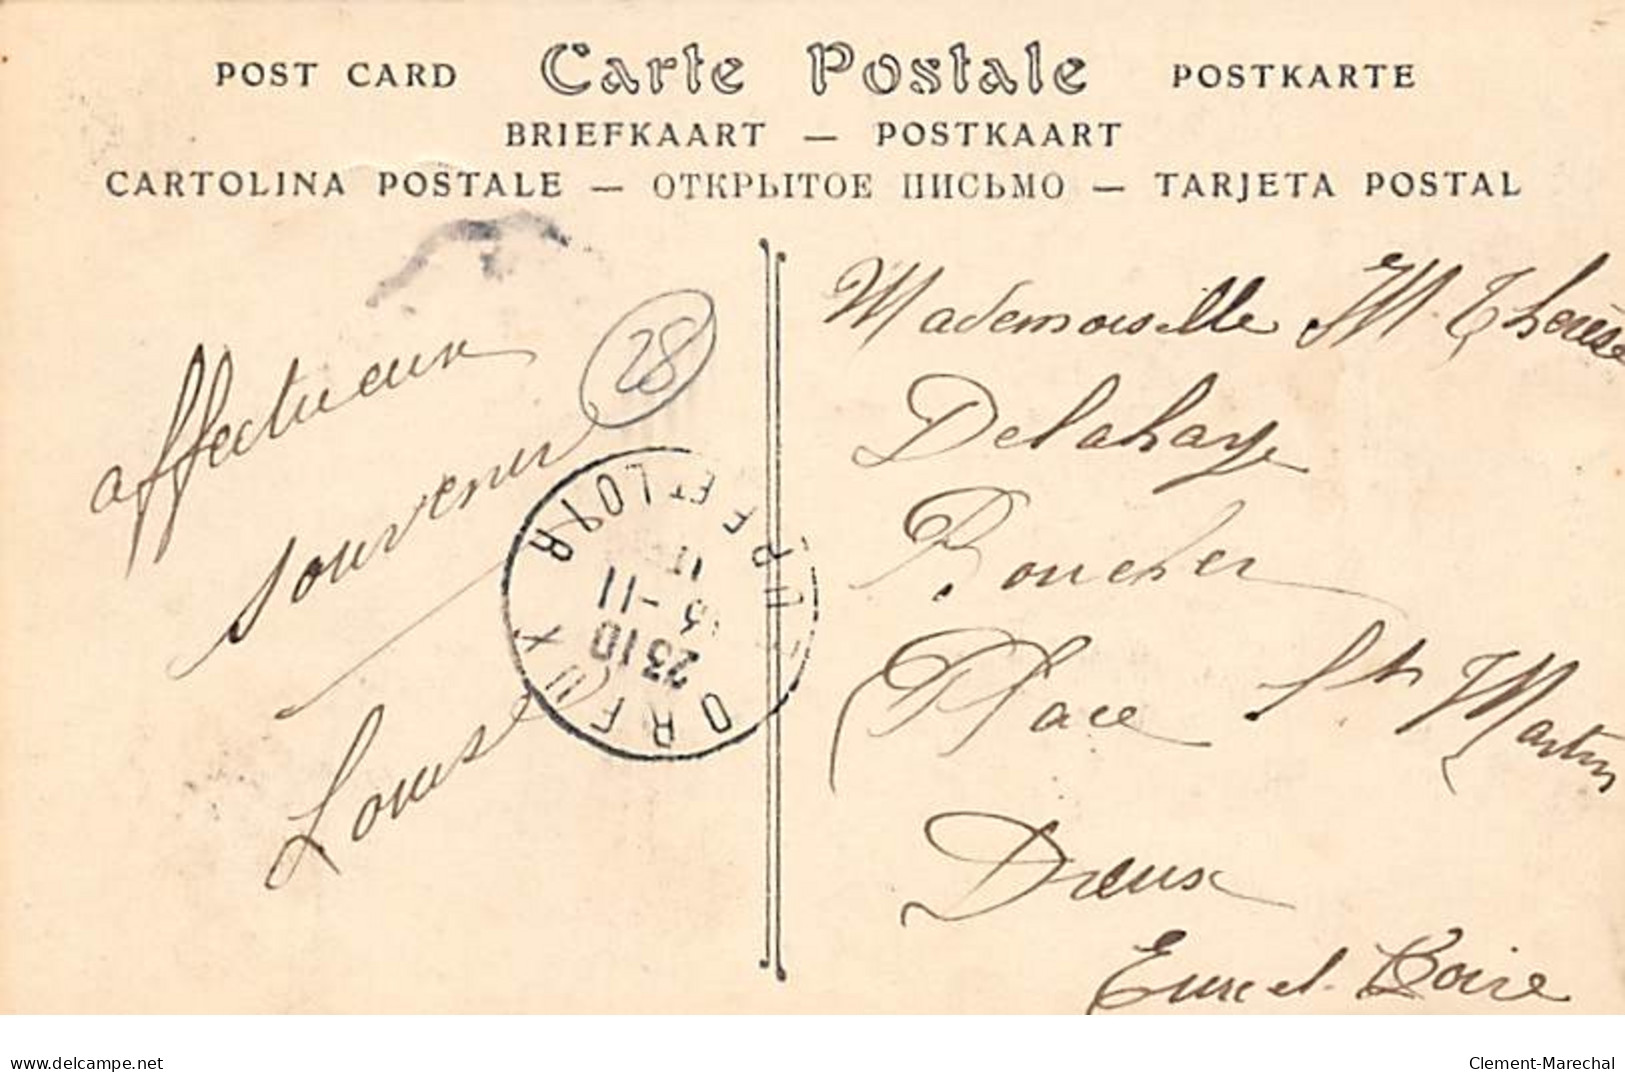 POST CARD Carte Postale POSTKARTE
BRIEFKAART — POSTKAART
CARTOLINA POSTALE — ОТКРЫТОЕ ПИСЬМО — TARJETA POSTAL
affectueux
souvenir
Louise
28
DREUX
EURE ET LOIR
2310
-11
11
Mademoiselle M. Thérèse
Delahaye
Boucher
Place St Martin
Dreux
Eure et Loire
www.delcampe.net
Clement-Marechal